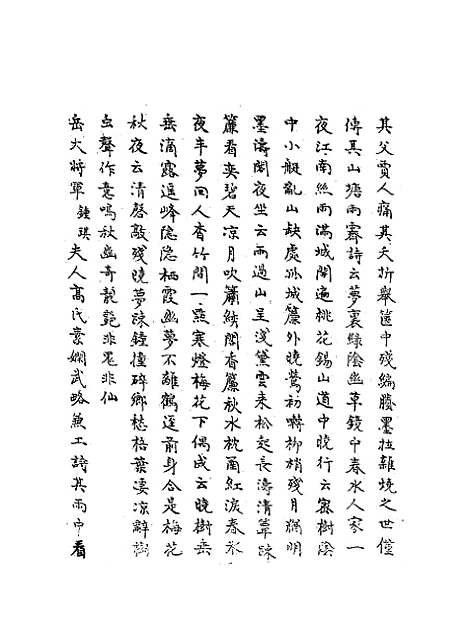 其父賈人痛其夭折舉篋中殘編賸墨拉雜燒之世僅
傳其山塘雨霽詩云夢裏綠陰幽草鏡中春水人家一
夜江南絲雨滿城開遍桃花錫山道中曉行云密樹陰
中小艇亂山缺處孤城簾外曉鶯初囀柳梢殘月猶明
墨濤閣夜坐云雨過山呈淺黛雲來松起長濤清簟疎
簾看奕碧天凉月吹簫紩閣香簾秋水枕函紅淚春氷
夜半夢回人杳竹間一點寒燈梅花下偶成云曉樹垂
垂滴露遥峰隐隐栖霞幽夢不離鶴逕前身合是梅花
秋夜云清磬敲殘曉夢疎鐘撞碎鄉愁梧葉凄凉辭樹
虫聲作意鳴秋幽奇靚艶非鬼非仙
岳大將軍鍾琪夫人高氏素嫻武略兼工詩其雨中看